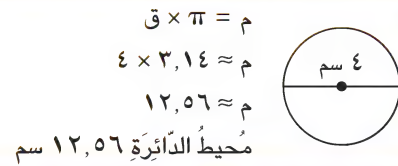 م = π × ق
م ≈ ٣,١٤ × ٤
م ≈ ١٢,٥٦
مُحيطُ الدّائِرَةِ ١٢,٥٦ سم
٤ سم